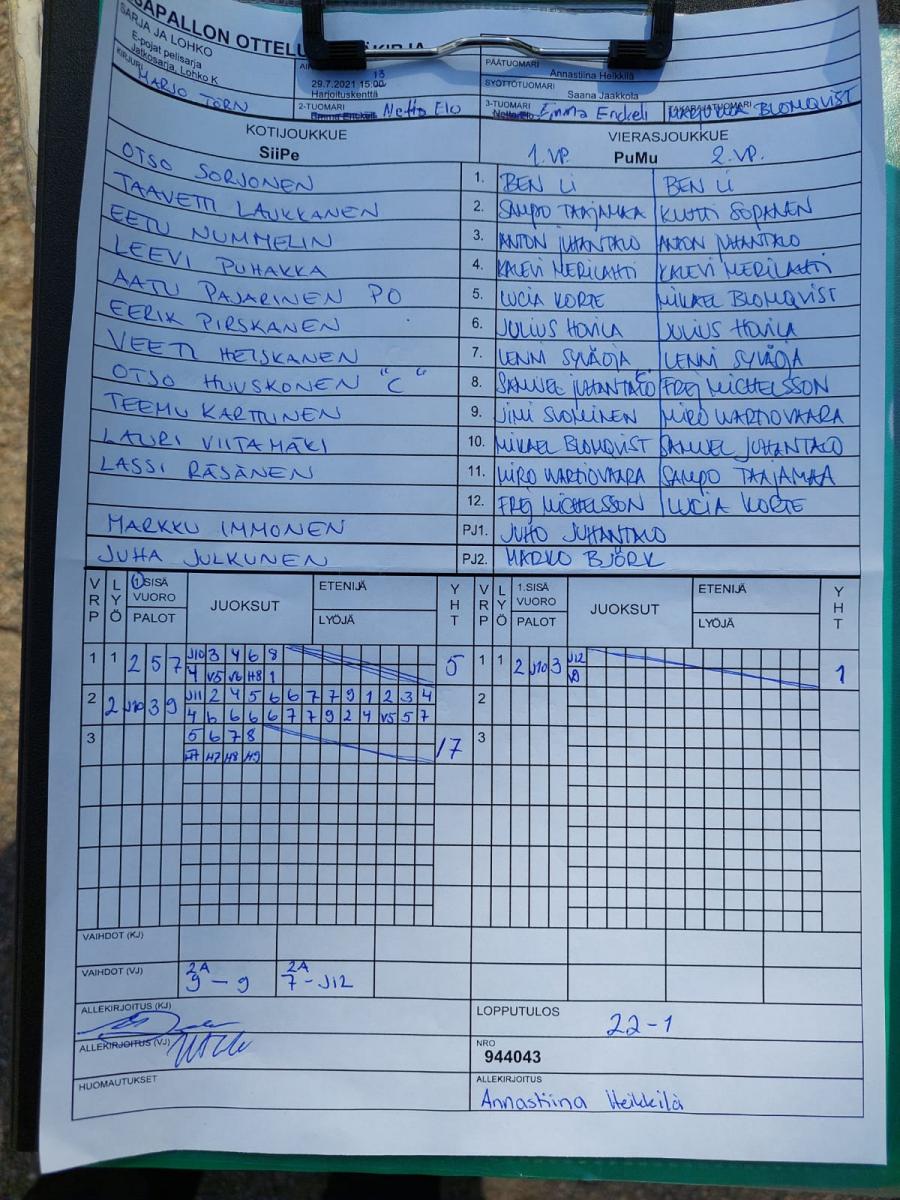 SAPALLON OTTELU
SARJA JA LOHKO
E-pojat pelisarja
Jatkosarja, Lohko K
KIRJURI
MARJO TÖRN
13
29.7.2021 15:00
Harjoituskenttä
PÄÄTUOMARI
Annastiina Heikkilä
SYÖTTÖTUOMARI
Saana Jaakkola
2-TUOMARI
Emma Enckell Netta Elo
3-TUOMARI
Netta Elo Emma Enckell
TAKARAJATUOMARI
BLOMQVIST
KOTIJOUKKUE
SiiPe
VIERASJOUKKUE
1. VP. PuMu 2. VP.
OTSO SORJONEN 1. BEN LI BEN LI
TAAVETTI LAUKKANEN 2. SAMPO TAAJAMAA KUTTI SOPANEN
EETU NUMMELIN 3. ANTON JUHANTALO ANTON JUHANTALO
LEEVI PUHAKKA 4. KALEVI MERILAHTI KALEVI MERILAHTI
AATU PAJARINEN PO 5. LUCIA KORTE MIKAEL BLOMQVIST
EERIK PIRSKANEN 6. JULIUS HOVILA JULIUS HOVILA
VEETI HEISKANEN 7. LENNI SYVÄOJA LENNI SYVÄOJA
OTSO HUUSKONEN "C" 8. SAMUEL JUHANTALO C FREJ MICHELSSON
TEEMU KARTTUNEN 9. JIMI SUOMINEN MIRO WARTIOVAARA
LAURI VIITAMÄKI 10. MIKAEL BLOMQVIST SAMUEL JUHANTALO
LASSI RÄSÄNEN 11. MIRO WARTIOVAARA SAMPO TAAJAMAA
12. FREJ MICHELSSON LUCIA KORTE
MARKKU IMMONEN PJ1. JUHO JUHANTALO
JUHA JULKUNEN PJ2. MARKO BJÖRK
VRP LYÖ 1.SISÄ VUORO PALOT JUOKSUT ETENIJÄ LYÖJÄ YHT VRP LYÖ 1.SISÄ VUORO PALOT JUOKSUT ETENIJÄ LYÖJÄ YHT
1 1 2 5 7 J10 3 4 6 8 5 1 1 2 J10 3 J12 1
4 V5 V6 H8 1 V9
2 2 J10 3 9 J11 2 4 5 6 6 7 7 9 1 2 3 4 2
4 6 6 6 6 7 7 9 2 4 V5 5 7
3 5 6 7 8 17 3
H7 H7 H8 H9
VAIHDOT (KJ)
VAIHDOT (VJ) 2A 9 - 9 2A 7 - J12
ALLEKIRJOITUS (KJ)
LOPPUTULOS
22-1
ALLEKIRJOITUS (VJ)
NRO
944043
HUOMAUTUKSET
ALLEKIRJOITUS
Annastiina Heikkilä